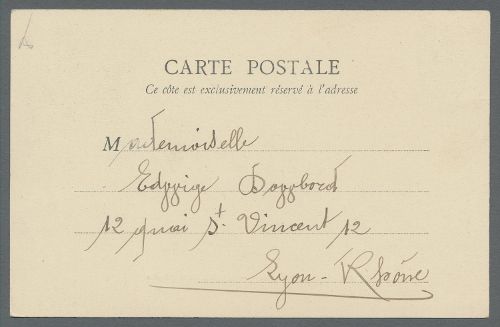 CARTE POSTALE
Ce côte est exclusivement réservé à l'adresse
Mademoiselle
12 quai St. Vincent 12
Lyon - Rhône